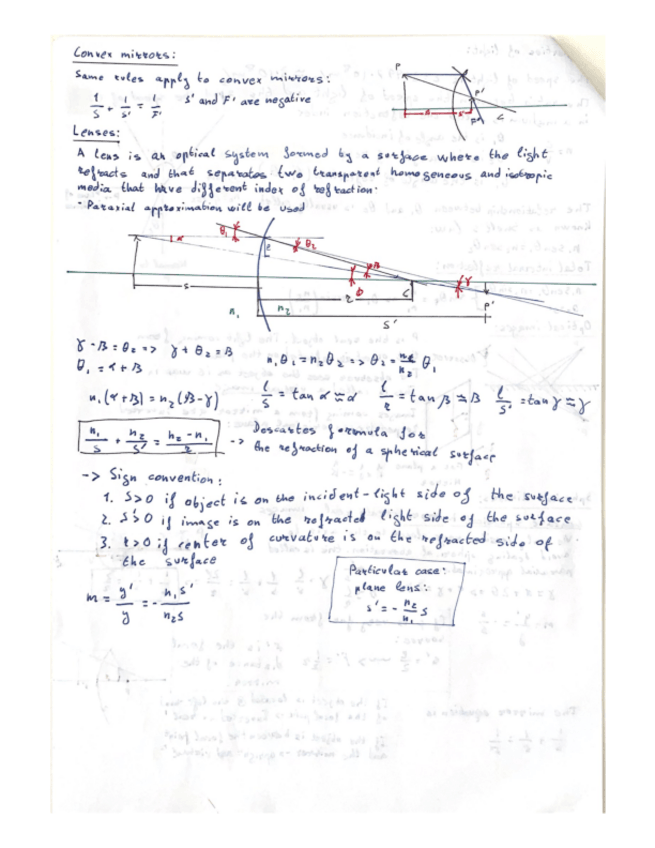 Convex mirrors:
Same rules apply to convex mirrors:
1/s + 1/s' = 1/F' s' and F' are negative
P
P'
F'
C
s
s'
Lenses:
A lens is an optical system formed by a surface where the light
refracts and that separates two transparent homogeneous and isotropic
media that have different index of refraction.
· Paraxial approximation will be used
α
θ₁
θ₂
l
β
Φ
γ
s
r
C
P'
n₁
n₂
S'
γ - β = θ₂ => γ + θ₂ = β
θ₁ = α + β
n₁θ₁ = n₂θ₂ => θ₂ = n₂/n₂ θ₁
n₁(α+β) = n₂(β-γ)
l/s = tan α ≈ α l/r = tan β ≈ β l/s' = tan γ ≈ γ
n₁/s + n₂/s' = (n₂ - n₁)/r -> Descartes formula for
the refraction of a spherical surface
-> Sign convention:
1. S>0 if object is on the incident-light side of the surface
2. S'>0 if image is on the refracted light side of the surface
3. r>0 if center of curvature is on the refracted side of
the surface
m = y'/y = - n₁s'/n₂s
Particular case:
plane lens:
s' = - n₂/n₁ s